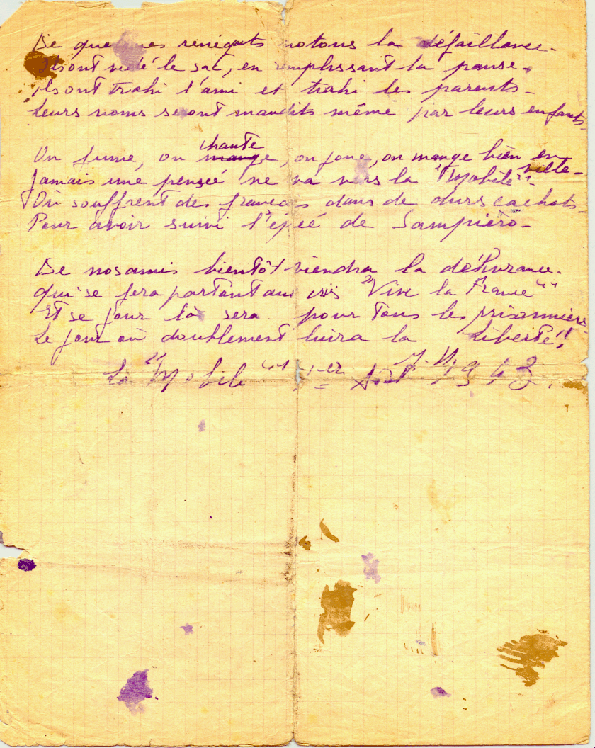 De quelques renégats notons la défaillance.
Ils ont vidé le sac, en remplissant la panse.
Ils ont trahi l'ami et trahi les parents.
Leurs noms seront maudits même par leurs enfants.
On fume, on chante, on joue, on mange bien en ville.
Jamais une pensée ne va vers la "Mobile".
Où souffrent des français dans de durs cachots
Pour avoir suivi l'épée de Sampiero.
De nos amis bientôt viendra la délivrance.
qui se fera partout aux cris "Vive la France"
Et se jour là sera pour tous les prisonniers
Le jour où doublement luira la liberté!!
La "Mobile" Août 1943.